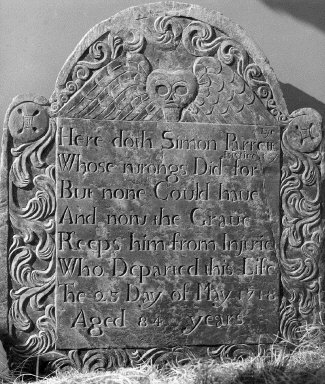 Here doth Simon Parrett
Whose wrongs Did for
But none Could have
And now the Graue
Keeps him from Injurie
Who Departed this Life
The 23 Day of May 1718
Aged 84 years